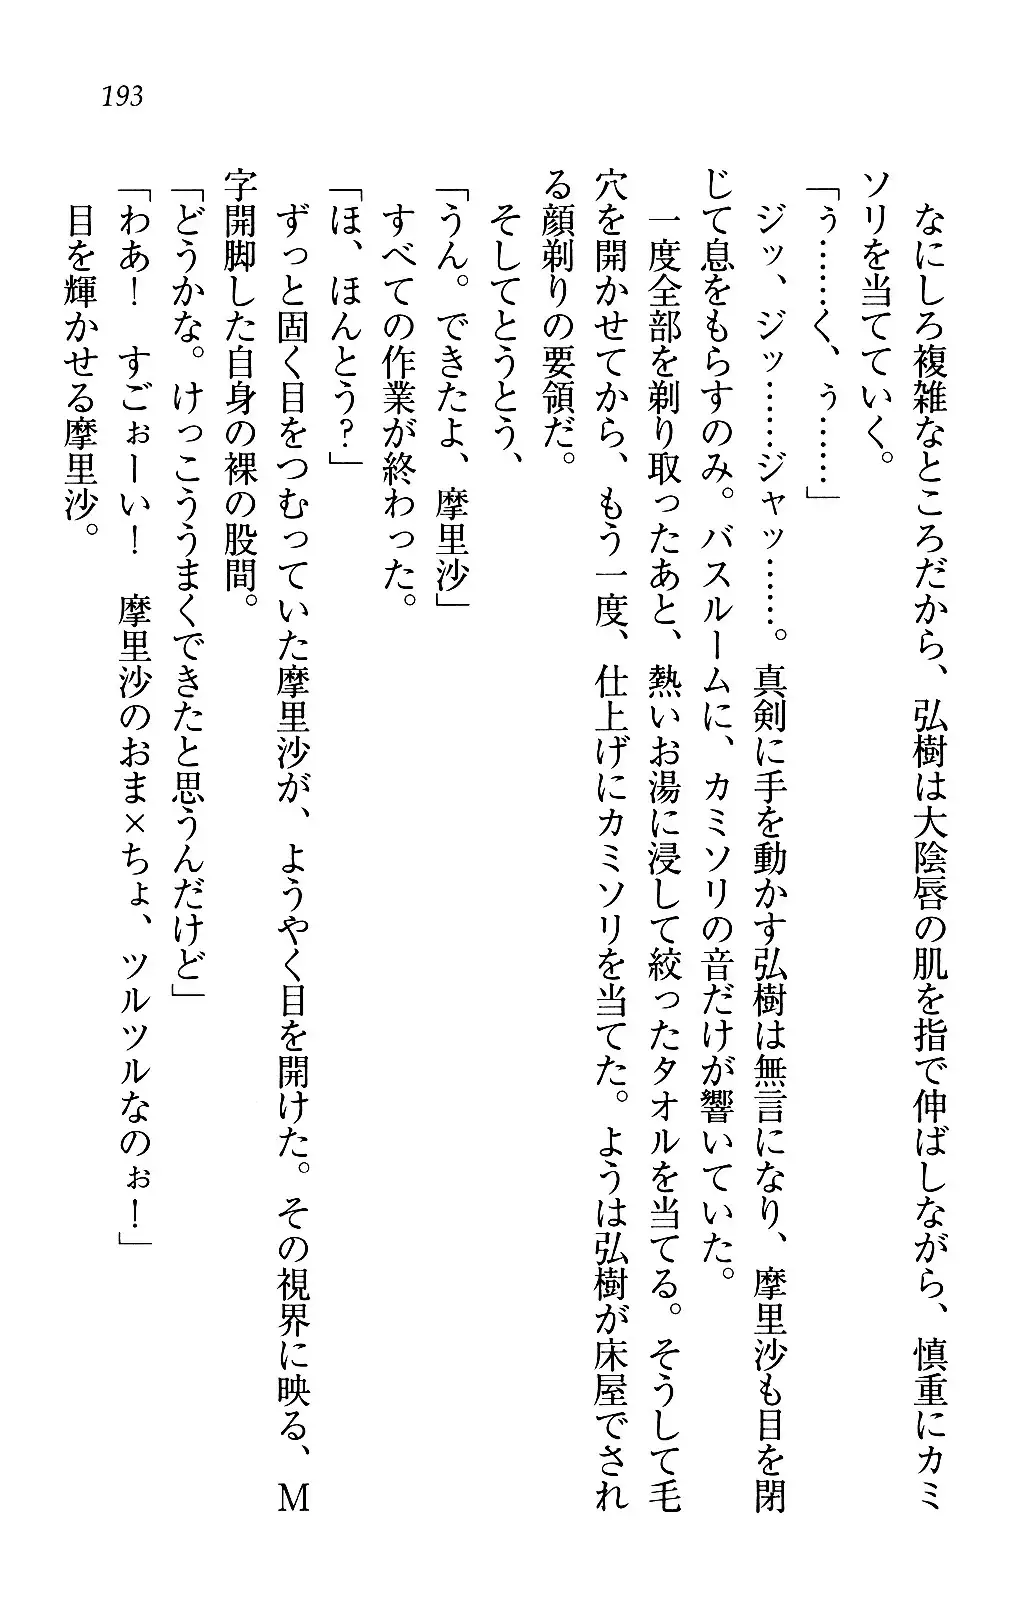 193
なにしろ複雑なところだから、弘樹は大陰唇の肌を指で伸ばしながら、慎重にカミ
ソリを当てていく。
「ぅ……く、ぅ……」
ジッ、ジッ……ジャッ……。真剣に手を動かす弘樹は無言になり、摩里沙も目を閉
じて息をもらすのみ。バスルームに、カミソリの音だけが響いていた。
一度全部を剃り取ったあと、熱いお湯に浸して絞ったタオルを当てる。そうして毛
穴を開かせてから、もう一度、仕上げにカミソリを当てた。ようは弘樹が床屋でされ
る顔剃りの要領だ。
そしてとうとう、
「うん。できたよ、摩里沙」
すべての作業が終わった。
「ほ、ほんとう?」
ずっと固く目をつむっていた摩里沙が、ようやく目を開けた。その視界に映る、M
字開脚した自身の裸の股間。
「どうかな。けっこううまくできたと思うんだけど」
「わあ! すごぉーい! 摩里沙のおま×ちょ、ツルツルなのぉ!」
目を輝かせる摩里沙。